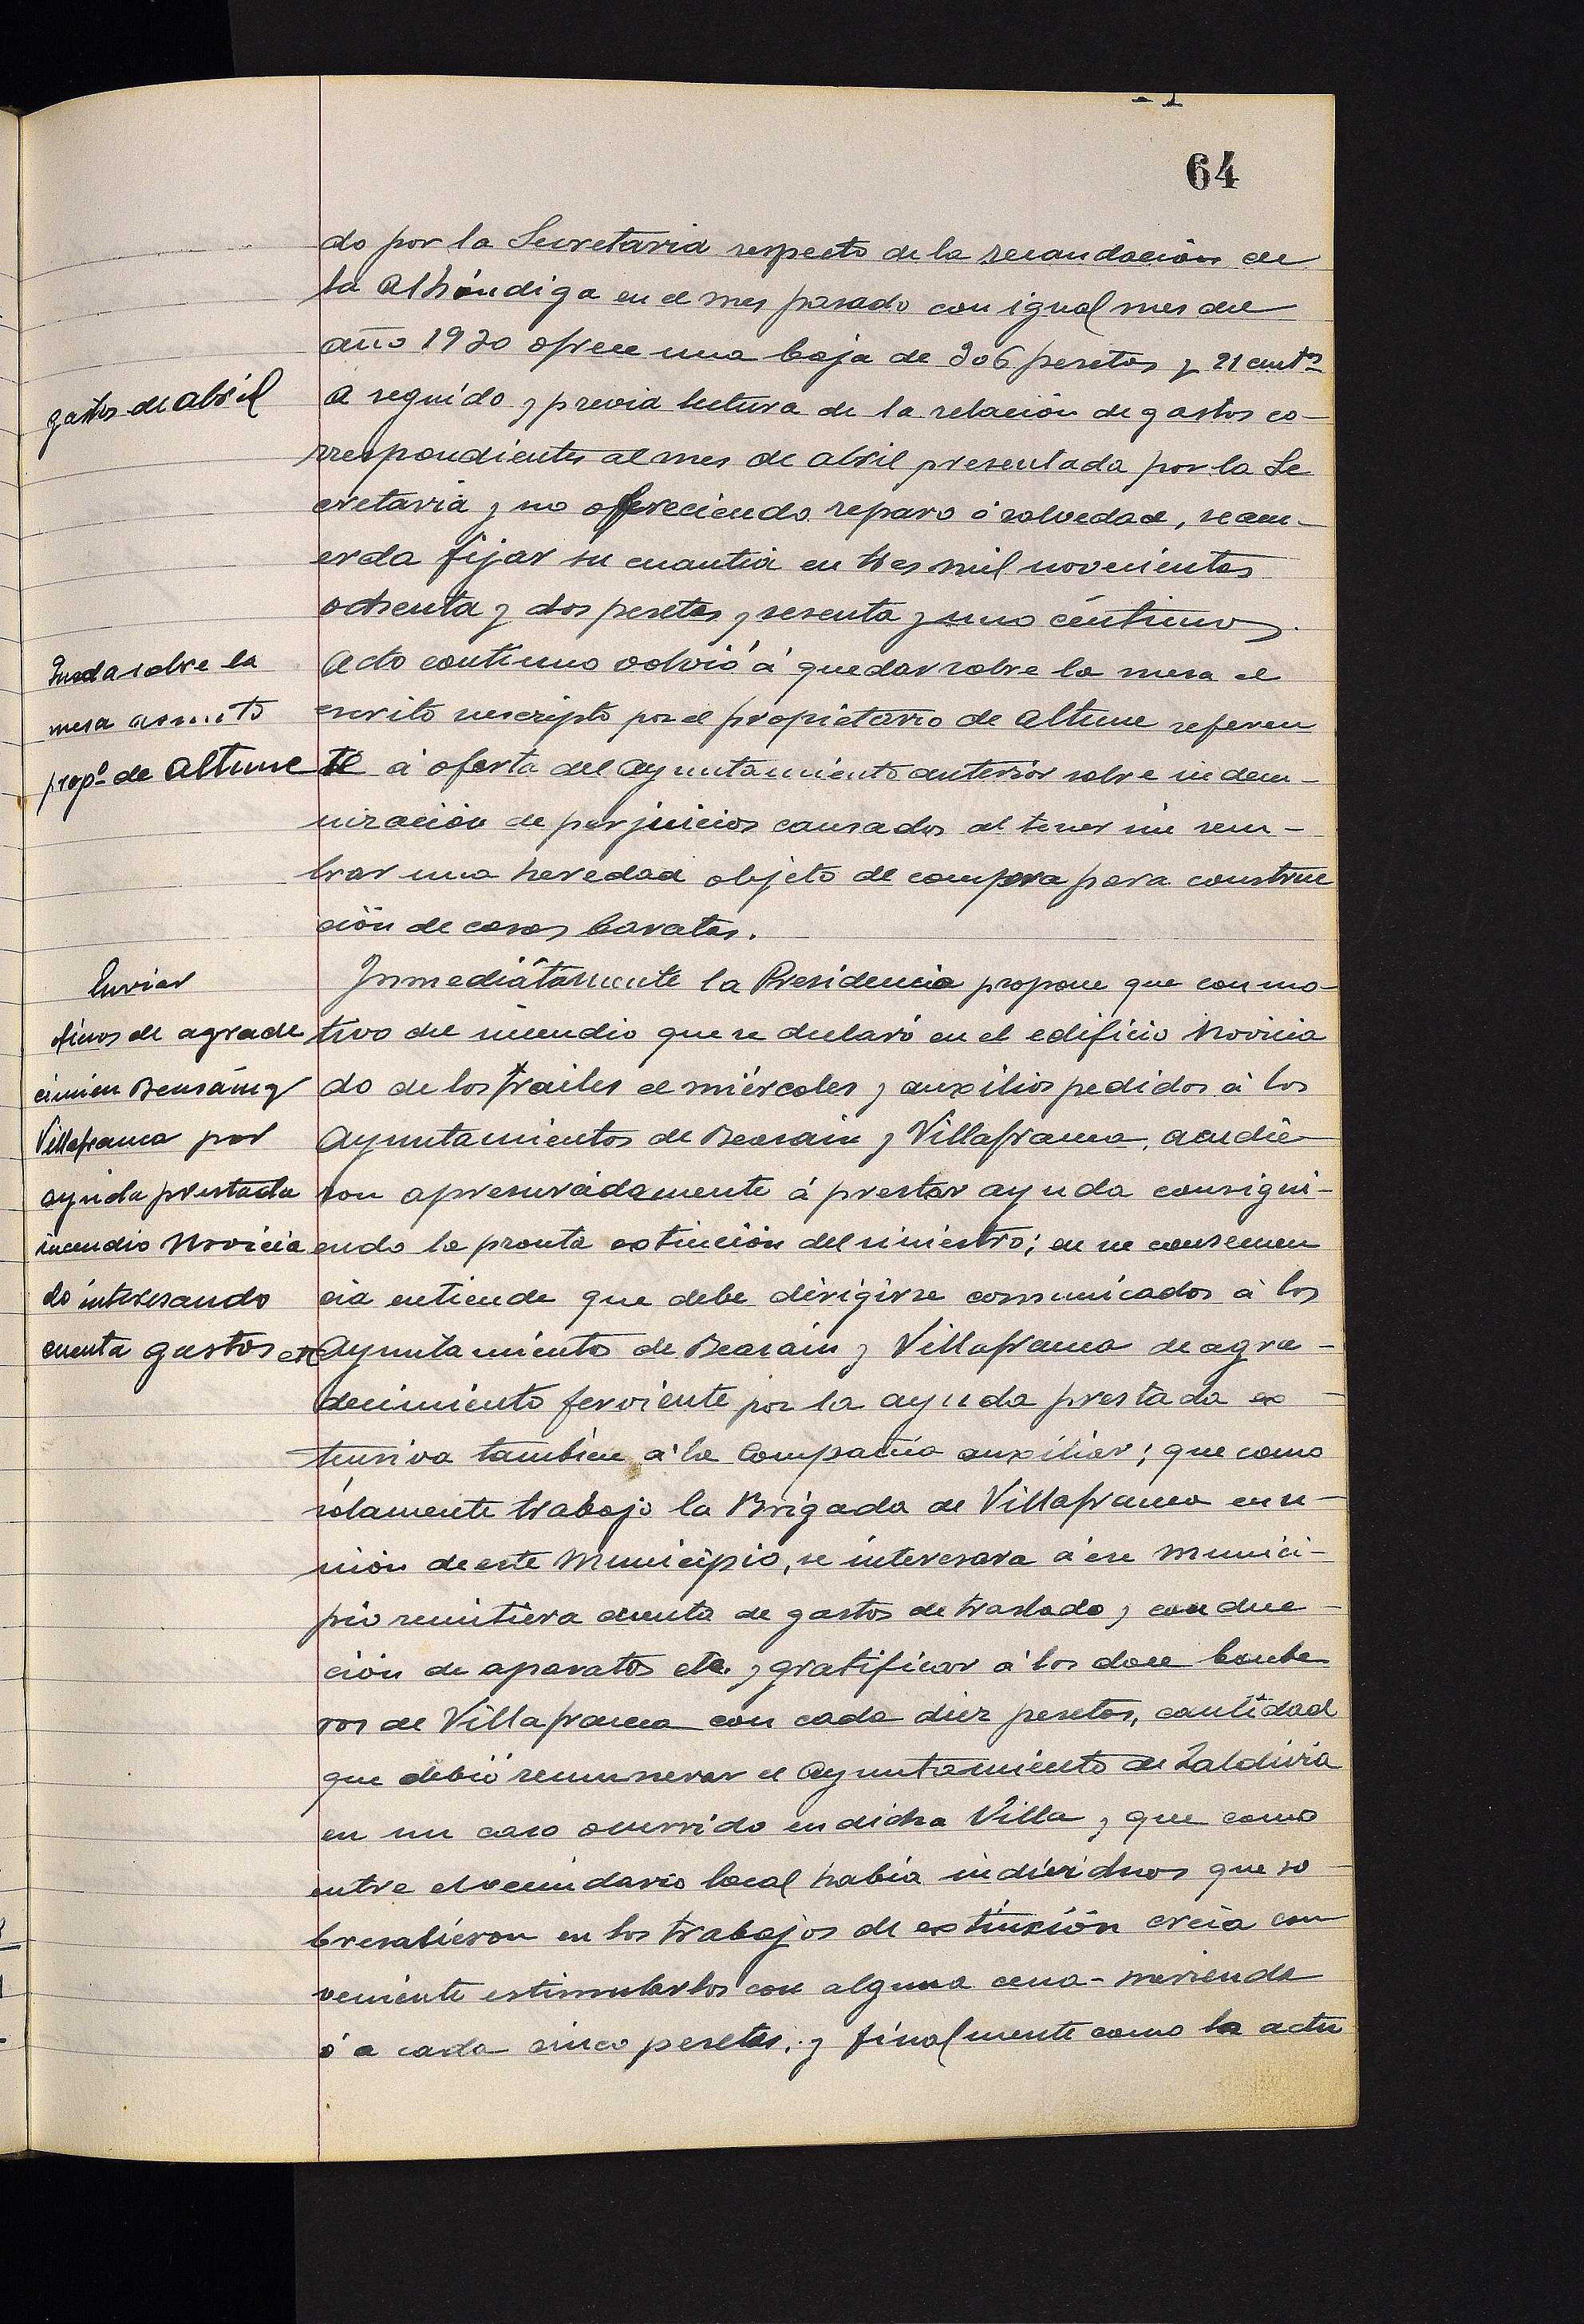 64
do por la Secretaria respecto de la recaudación de
la Alhóndiga en el mes pasado con igual mes del
año 1930 ofrece una baja de 306 pesetas y 21 cents
gastos de abril
A seguido y previa lectura de la relación de gastos co-
rrespondientes al mes de abril presentada por la Se
cretaria y no ofreciendo reparo ó salvedad, se acu-
erda fijar su cuantia en tres mil novecientas
ochenta y dos pesetas y sesenta y uno céntimos.
Queda sobre la
mesa asunto
propº de Altune
Acto continuo volvió á quedar sobre la mesa el
escrito suscripto por el propietario de Altune referen
te á oferta del Ayuntamiento anterior sobre indem-
nización de perjuicios causados al tener sin sem-
brar una heredad objeto de compra para construc
ción de casas baratas.
Enviar
oficios de agrade
cimien Beasáin y
Villafranca por
ayuda prestada
incendio Novicia
do interesando
cuenta gastos etc
Inmediatamente la Presidencia propone que con mo-
tivo del incendio que se declaró en el edificio Novicia
do de los frailes el miércoles y auxilios pedidos á los
Ayuntamientos de Beasain y Villafranca, acudie-
ron apresuradamente á prestar ayuda consigui-
endo la pronta extinción del siniestro; en su consecuen
cia entiende que debe dirigirse comunicados á los
Ayuntamientos de Beasain y Villafranca de agra-
decimiento ferviente por la ayuda prestada ex-
tensiva tambien á la Compañia auxiliar; que como
sólamente trabajo la Brigada de Villafranca en u-
nión de este Municipio, se interesara á ese Munici-
pio remitiera cuenta de gastos de traslado y conduc-
ción de aparatos etc. y gratificar á los doce bombe
ros de Villafranca con cada diez pesetas, cantidad
que debió remunerar el Ayuntamiento de Zaldivia
en un caso ocurrido en dicha Villa y que como
entre el vecindario local habia individuos que so-
bresalieron en los trabajos de extinxión creia con
veniente estimularlos con alguna cena-merienda
ó a cada cinco pesetas; y finalmente como la actu